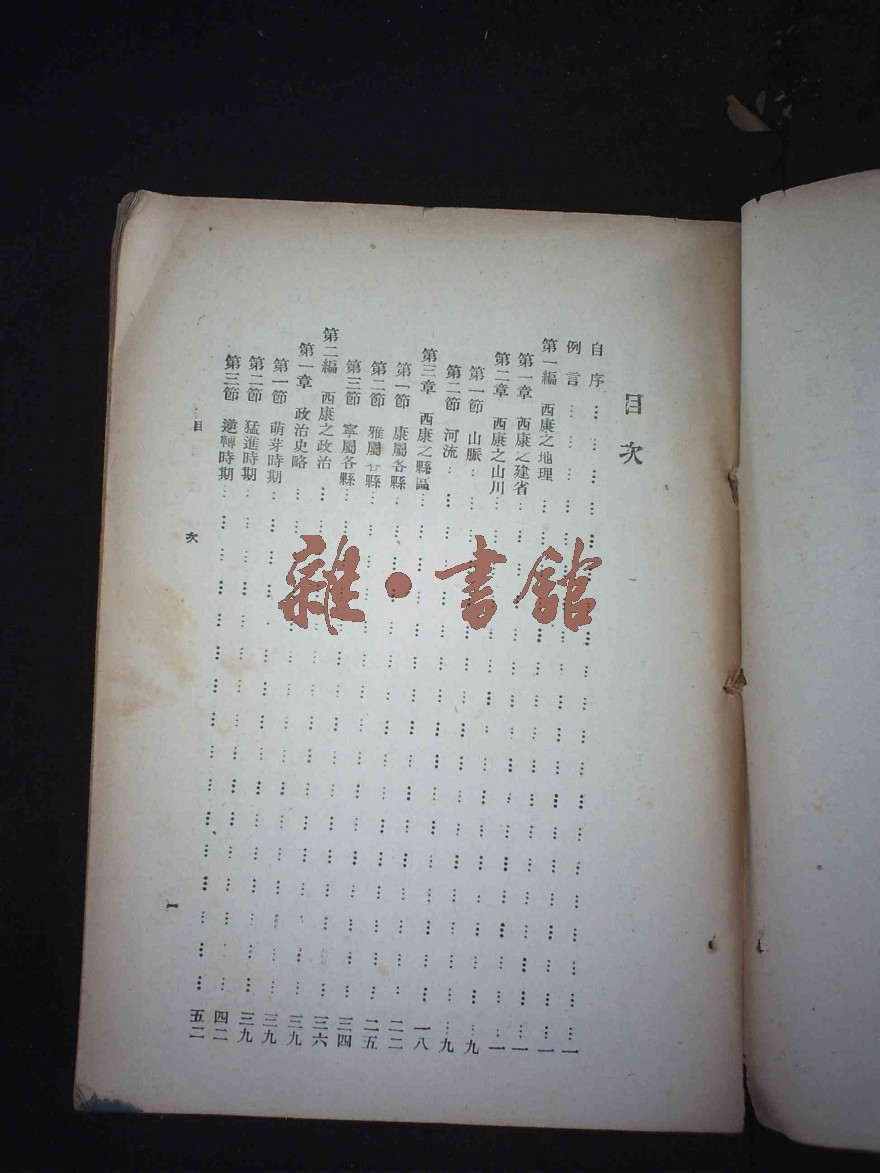 目次
自序………………一
例言………………一
第一編 西康之地理………………一
第一章 西康之建省………………一
第二章 西康之山川………………九
第一節 山脈………………九
第二節 河流………………一八
第三章 西康之縣區………………二二
第一節 康屬各縣………………二五
第二節 雅屬各縣………………三四
第三節 寧屬各縣………………三六
第二編 西康之政治………………三九
第一章 政治史略………………三九
第一節 萌芽時期………………三九
第二節 猛進時期………………四二
第三節 逆轉時期………………五二
目次
一
雜·書館